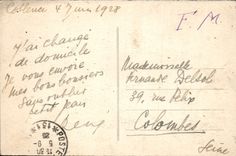 Coblence 4 juin 1928
F. M.
J'ai changé
de domicile
Je vous envoie
mes bons baisers
sans oublier
petit Jean
Mademoiselle
Fernande Delsol
39, rue Félix
Colombes
Seine
POSTE